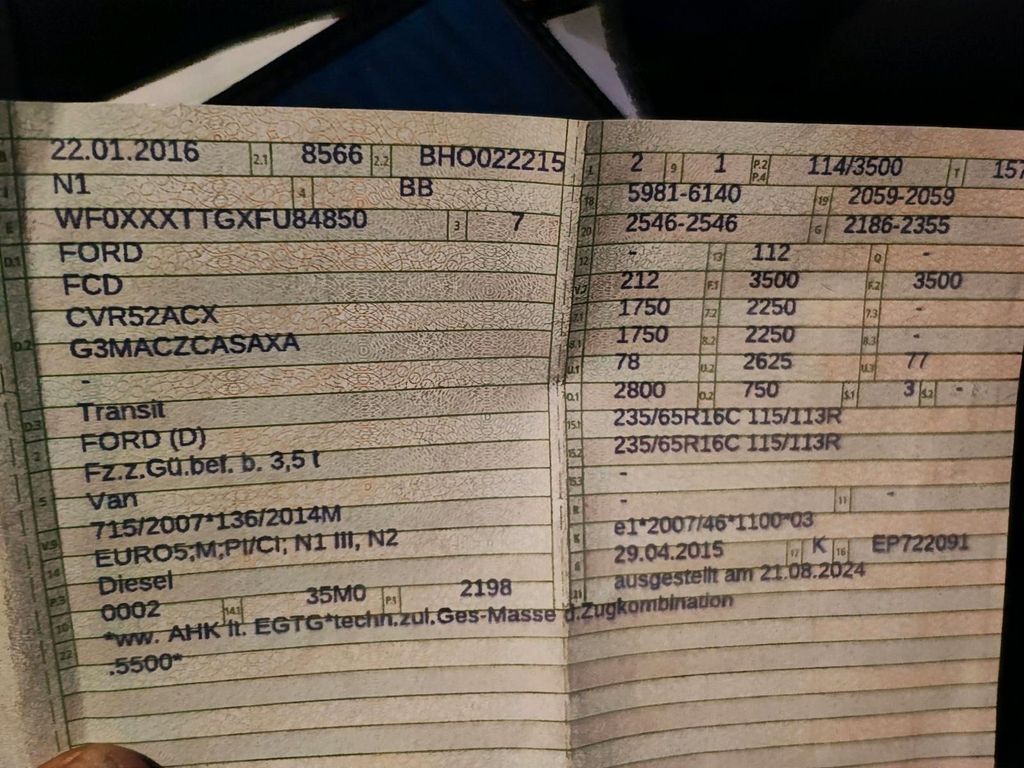 22.01.2016 2.1 8566 2.2 BHO022215
N1 4 BB
WF0XXXTTGXFU84850 3 7
D.1 FORD
FCD
CVR52ACX
D.2 G3MACZCASAXA
-
D.3 Transit
2 FORD (D)
Fz.z.Gü.bef. b. 3,5 t
5 Van
715/2007*136/2014M
V.9 EURO5;M;PI/CI; N1 III, N2
14 Diesel
P.3 0002 14.1 35M0 P.1 2198
10 *ww. AHK lt. EGTG*techn.zul.Ges-Masse d.Zugkombination
22 .5500*
L 2 9 1 P.2 P.4 114/3500 T 157
18 5981-6140 19 2059-2059
20 2546-2546 G 2186-2355
12 - 13 112 Q -
V.7 212 F.1 3500 F.2 3500
7.1 1750 7.2 2250 7.3 -
8.1 1750 8.2 2250 8.3 -
U.1 78 U.2 2625 U.3 77
O.1 2800 O.2 750 S.1 3 S.2 -
15.1 235/65R16C 115/113R
15.2 235/65R16C 115/113R
15.3 -
R - 11 -
K e1*2007/46*1100*03
6 29.04.2015 17 K 16 EP722091
21 ausgestellt am 21.08.2024